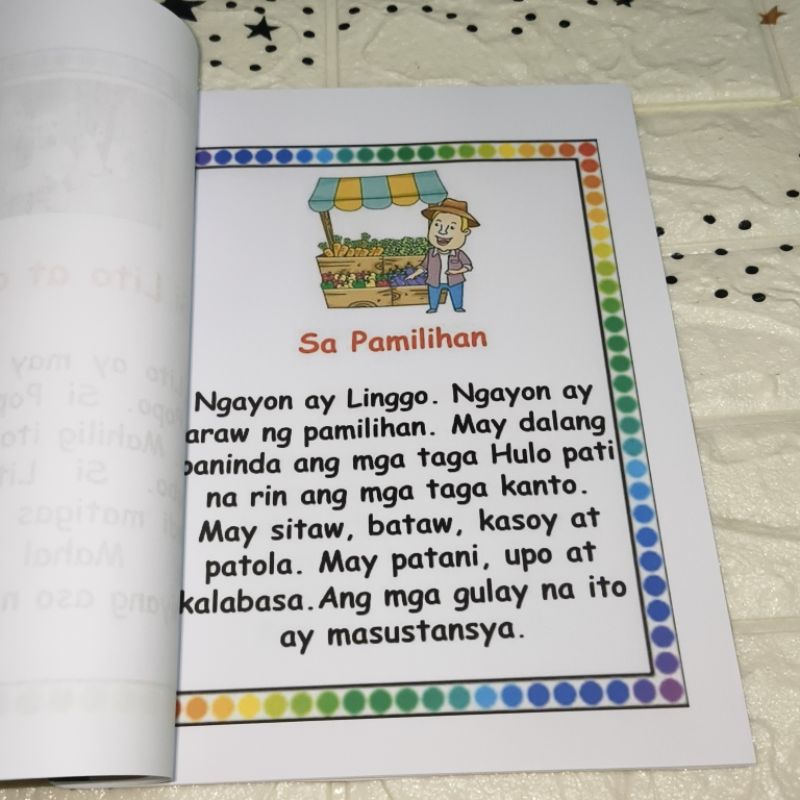 Sa Pamilihan
Ngayon ay Linggo. Ngayon ay
araw ng pamilihan. May dalang
paninda ang mga taga Hulo pati
na rin ang mga taga kanto.
May sitaw, bataw, kasoy at
patola. May patani, upo at
kalabasa. Ang mga gulay na ito
ay masustansya.